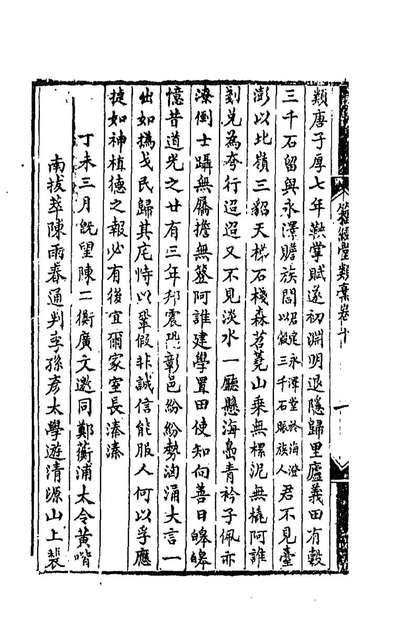 類唐子厚七年鞅掌賦遂初淵明退隱歸里廬義田有穀
三千石留與永澤贍族閭以詔定永澤堂於海澄做三千石賑族人君不見臺
澎以北嶺三貂天梯石棧森苕蕘山乘無樏泥無橇阿誰
刻兌為夯行迢迢又不見淡水一廳懸海島青衿子佩亦
潦倒士躡無屩擔無簦阿誰建學置田使知向善日皞皞
憶昔道光之廿有三年邦震陟彰邑紛紛勢洶涌大言一
出如撝戈民歸其庇恃以鞏假非誠信能服人何以孚應
捷如神植德之報必有後宜爾家室長溱溱
丁未三月既望陳二衡廣文邀同鄭蘅浦太令黃喈
南拔萃陳雨春通判李孫彥太學遊清源山上裴
經堂類藁卷十
一